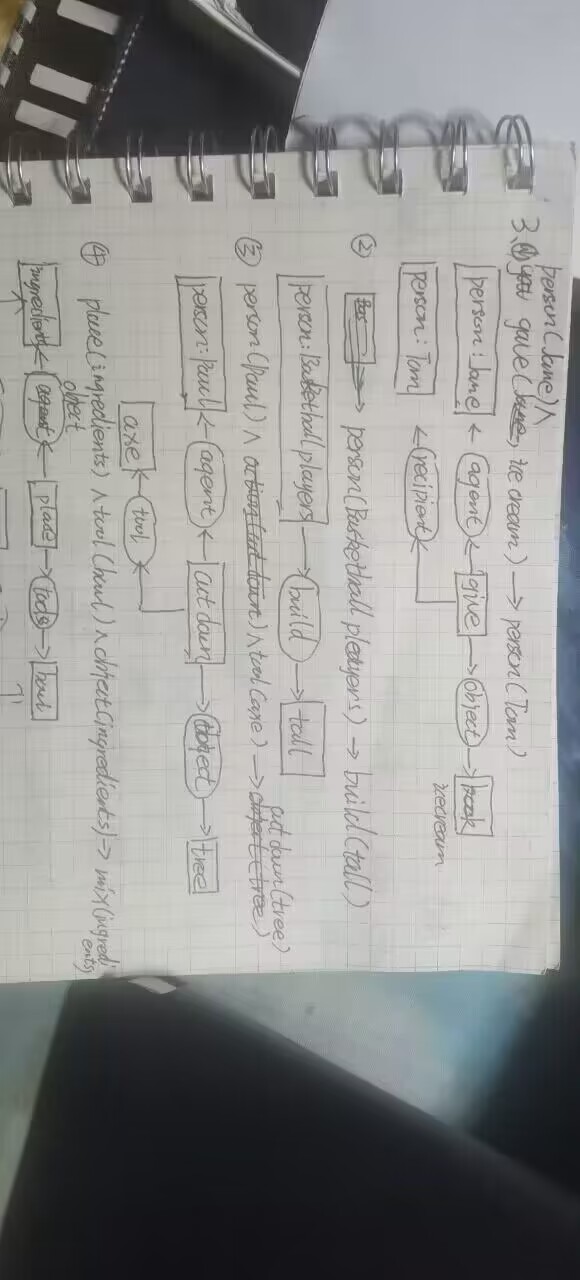 person(Jane)∧
3、① gave( , ice cream) → person(Tom)
person: Jane ← agent ← give → object → book
icecream
person: Tom ← recipient ←
② → person(Basketball pleayers) → build(tall)
person: Basketball players → build → tall
③ person(paul) ∧ action(cut down) ∧ tool(axe) → object(tree)
cut down(tree)
person: Paul ← agent ← cut down → object → tree
axe ← tool ←
④ place(ingredients) ∧ tool(bowl) ∧ object(ingredients) → mix(ingredients)
object
ingredient ← agent ← place → tools → bowl